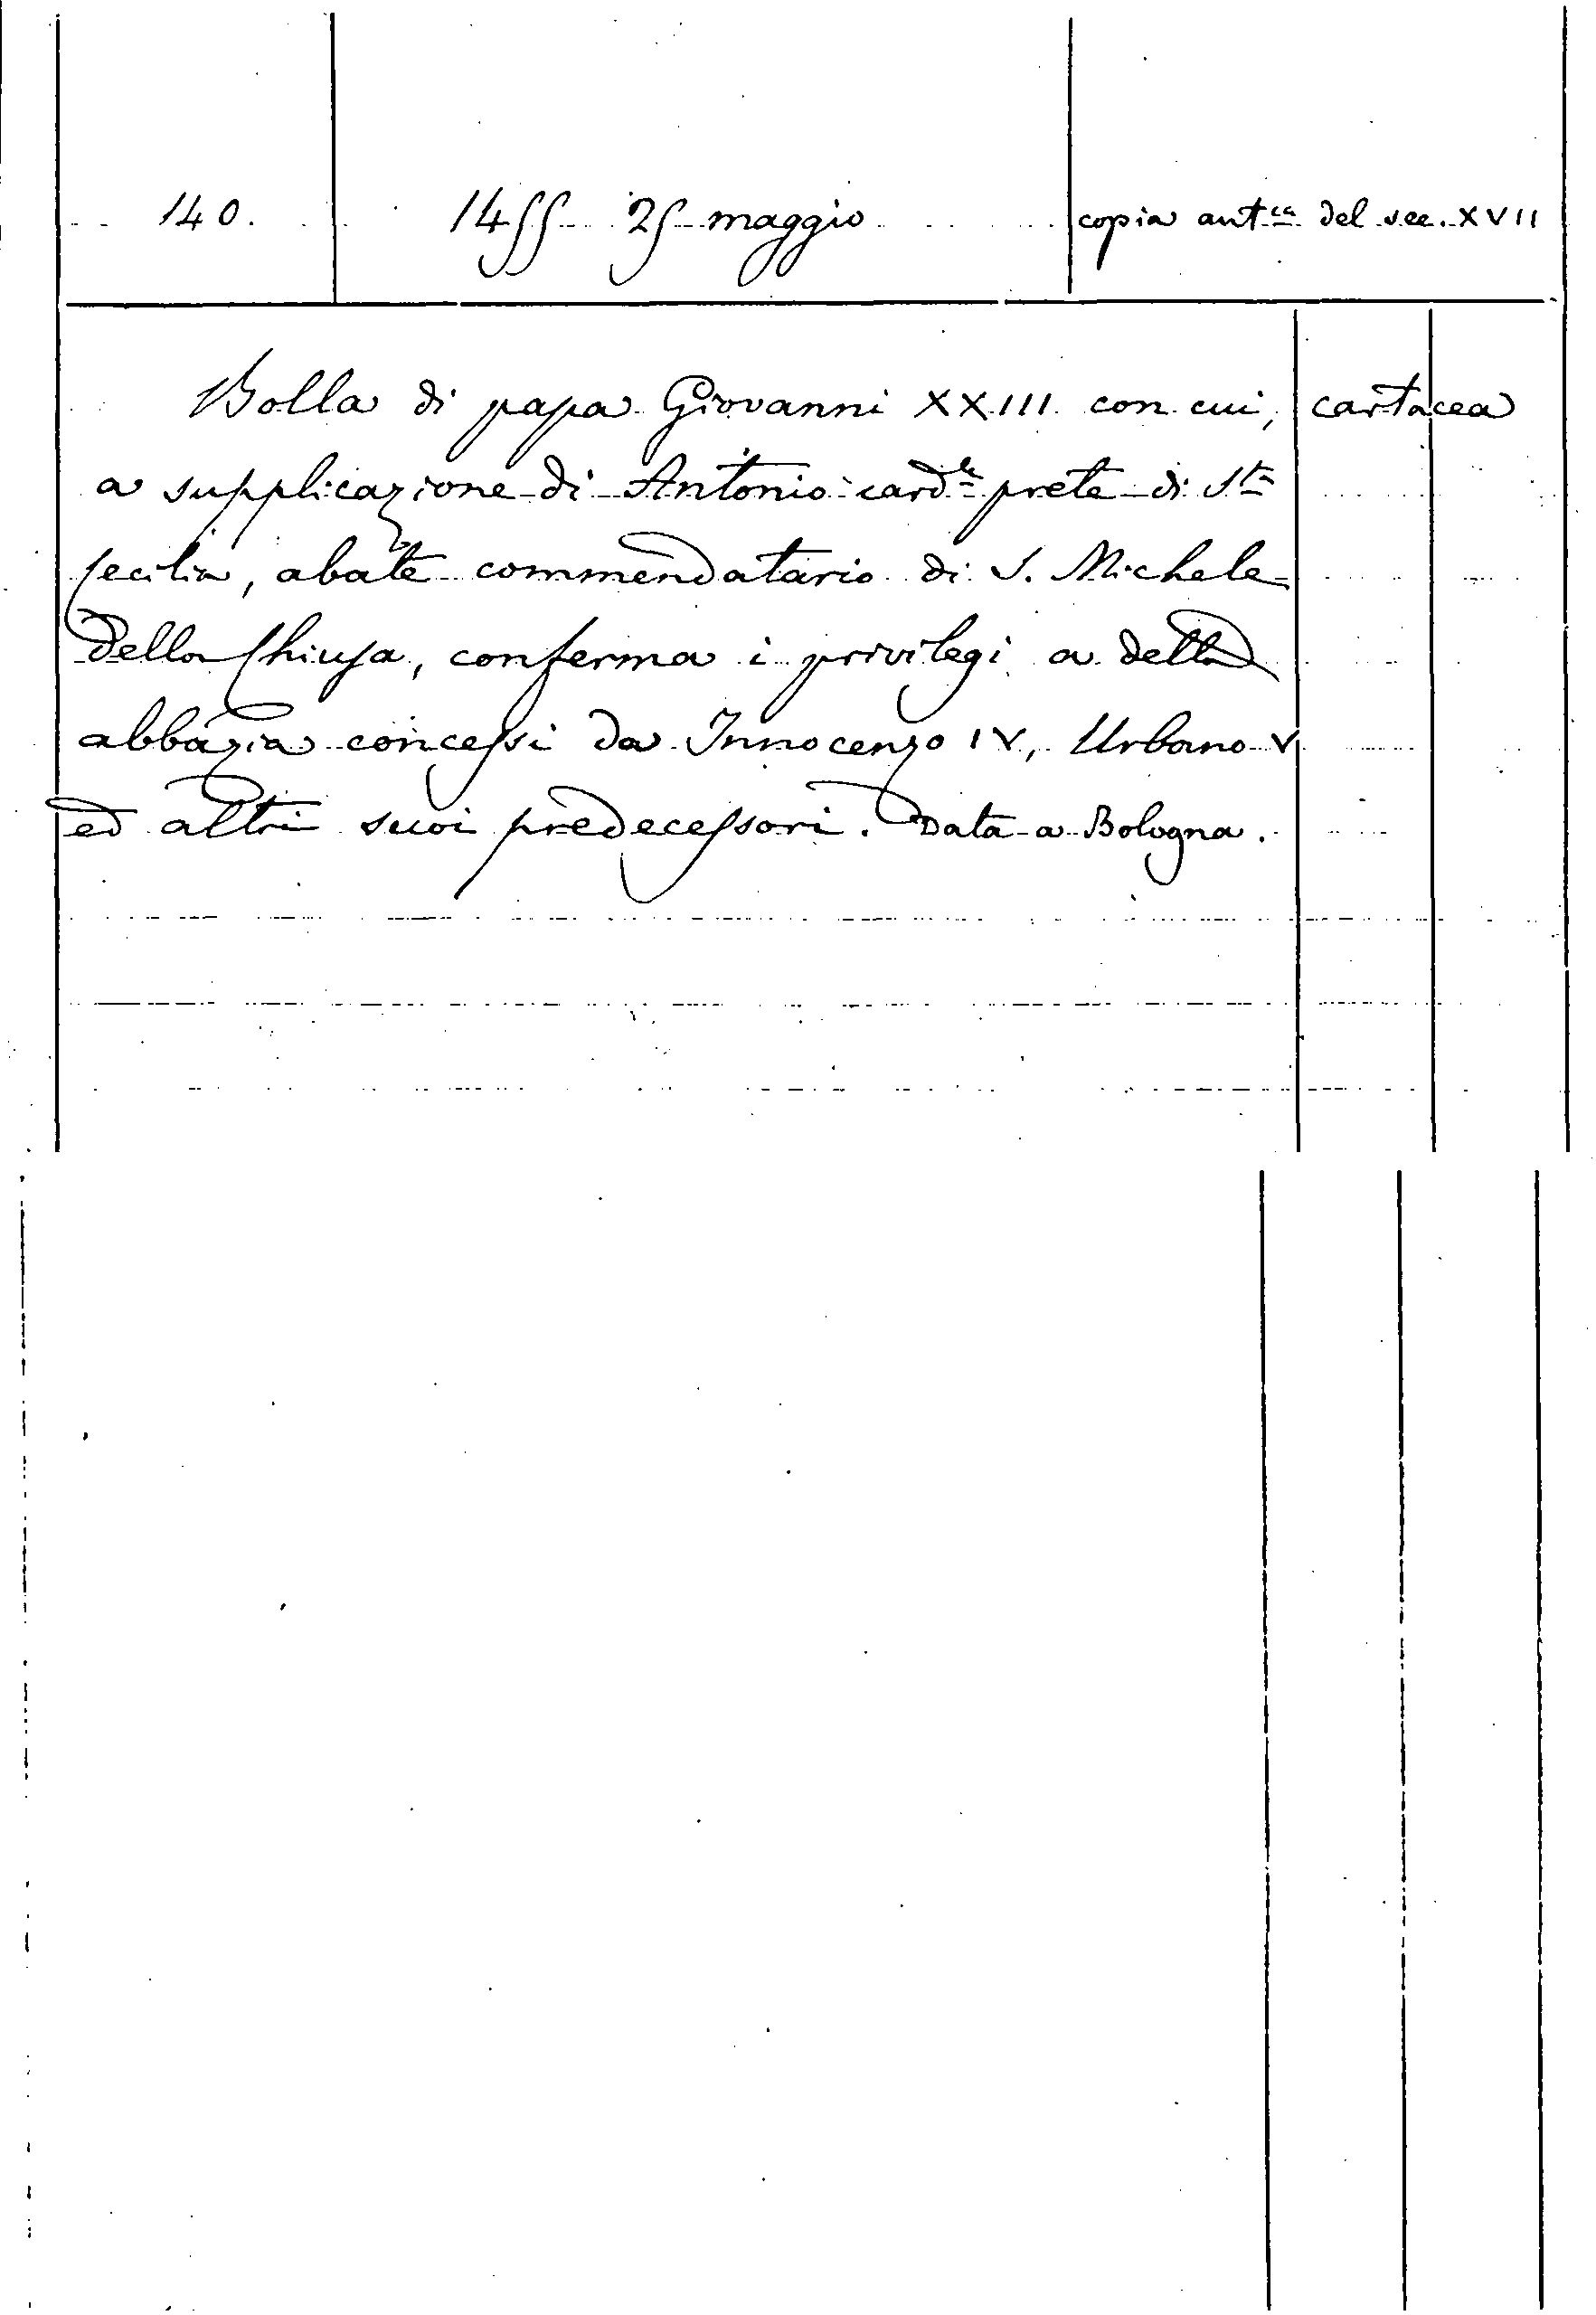 140. 1455 25 maggio copia ant.ca del sec. XVII
Bolla di papa Giovanni XXIII con cui, cartacea
a supplicazione di Antonio card.le prete di S.ta
Cecilia, abate commendatario di S. Michele
della Chiusa, conferma i privilegi a detta
abbazia concessi da Innocenzo IV, Urbano V
ed altri suoi predecessori. Data a Bologna.